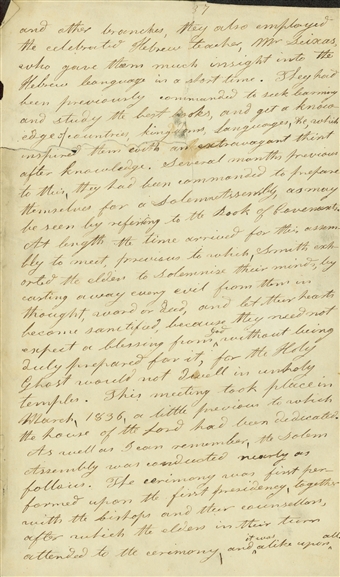 17
and other branches, they also employed
the celebrated Hebrew teacher, Mr Seixas,
who gave them much insight into the
Hebrew language in a short time. They had
been previously commanded to seek learning
and study the best books, and get a know-
edge of countries, kingdoms, languages, &c which
inspired them with an extravagant thirst
after knowledge. Several months previous
to this, they had been commanded to prepare
themselves for a Solemn Assembly, as may
be seen by refering to the Book of Covenants.
At length the time arrived for this assem
bly to meet, previous to which, Smith exh-
orted the elders to solemnize their minds, by
casting away every evil from them in
thought, word or deed, and let their hearts
become sanctified, because they need not
expect a blessing from God without being
duly prepared for it, for the Holy
Ghost would not dwell in unholy
temples. This meeting took place in
March, 1836, a little previous to which
the house of the Lord had been dedicated.
As well as I can remember, the Solem
Assembly was conducted nearly as
follows. The ceremony was first per
formed upon the first presidency, together
with the bishops and their counsellors,
after which the elders in their turn
attended to the ceremony, and it was alike upon all